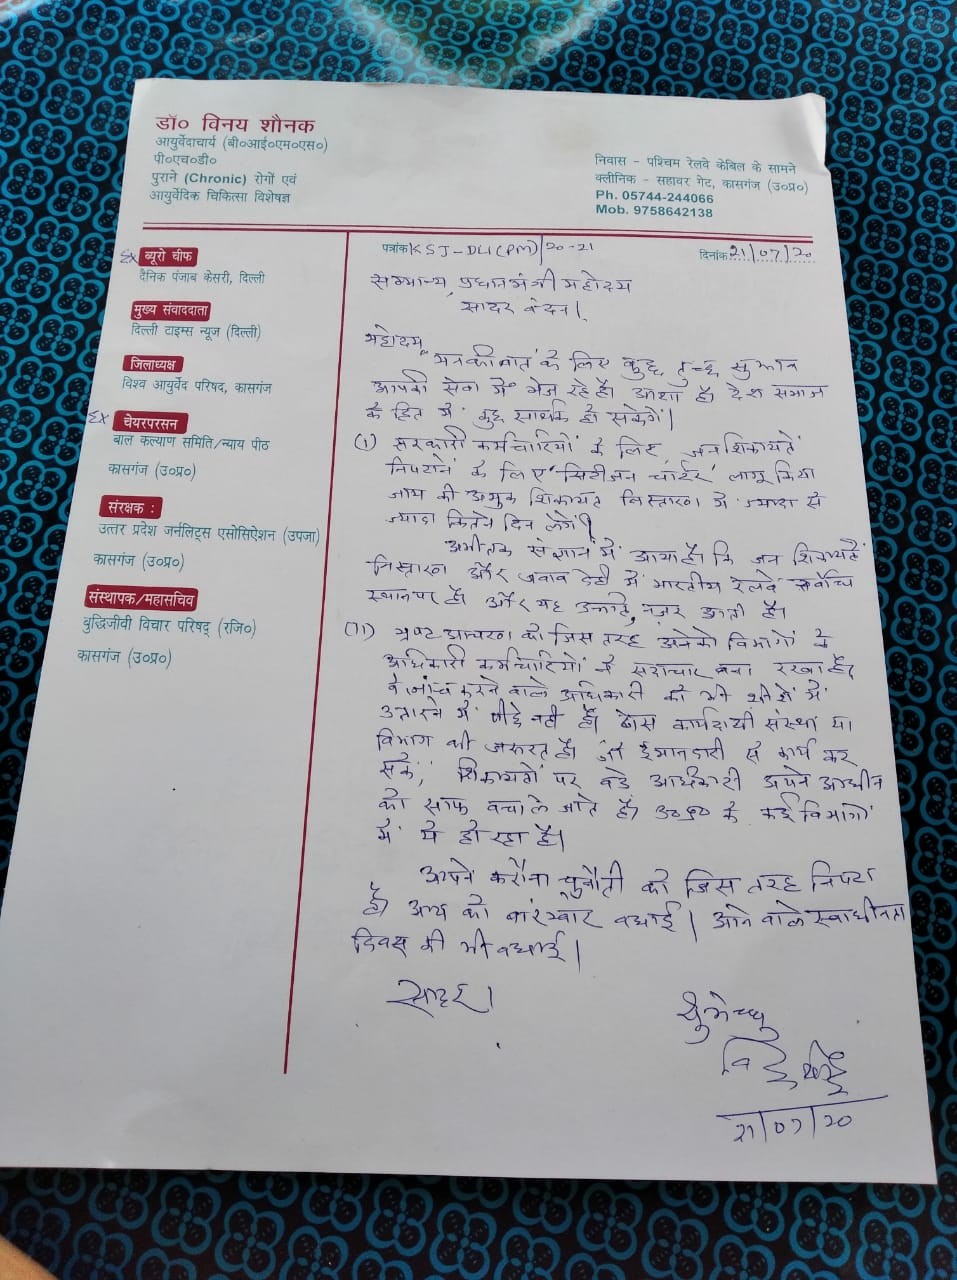 डॉ० विनय शौनक
आयुर्वेदाचार्य (बी०आई०एम०एस०)
पी०एच०डी०
पुराने (Chronic) रोगों एवं
आयुर्वेदिक चिकित्सा विशेषज्ञ
निवास - पश्चिम रेलवे केबिल के सामने
क्लीनिक - सहावर गेट, कासगंज (उ०प्र०)
Ph. 05744-244066
Mob. 9758642138
Ex ब्यूरो चीफ
दैनिक पंजाब केसरी, दिल्ली
मुख्य संवाददाता
दिल्ली टाइम्स न्यूज (दिल्ली)
जिलाध्यक्ष
विश्व आयुर्वेद परिषद, कासगंज
Ex चेयरपरसन
बाल कल्याण समिति/न्याय पीठ
कासगंज (उ०प्र०)
संरक्षक :
उत्तर प्रदेश जर्नलिट्स एसोसिऐशन (उपजा)
कासगंज (उ०प्र०)
संस्थापक/महासचिव
बुद्धिजीवी विचार परिषद् (रजि०)
कासगंज (उ०प्र०)
पत्रांक KSJ-DLI(PM)/20-21
दिनांक 21/07/20
सम्मान्य प्रधानमंत्री महोदय
सादर वंदन।
महोदय,
मनकीबात के लिए कुछ तुच्छ सुझाव
आपकी सेवा में भेज रहे हैं। आशा है। देश समाज
के हित में कुछ सार्थक हो सकेगें।
(1) सरकारी कर्मचारियों के लिए, जन शिकायतें
निपटाने के लिए सिटीजन चार्टर लागू किया
जाय की अमुक शिकायत निस्तारण में ज्यादा से
ज्यादा कितने दिन लगेगें
अभीतक संज्ञान में आया है। कि जन शिकायतें
निस्तारण और जवाब देही में भारतीय रेलवे सर्वोच्च
स्थान पर है। और यह उम्मीद नज़र आती है।
(11) भ्रष्ट आचरण को जिस तरह अनेको विभागों के
अधिकारी कर्मचारियों ने सदाचार बना रखा है।
वे जांच करने वाले अधिकारी को भी शीशे में
उतारने में पीछे नहीं हैं। ठोस कार्यदायी संस्था या
विभाग की जरूरत है। जो ईमानदारी से कार्य कर
सके, शिकायतों पर बडे अधिकारी अपने आधीन
को साफ बचा ले जाते हैं। उ०प्र० के कई विभागों
में ये हो रहा है।
आपने करौना चुनौती को जिस तरह निपटा
है। आप को बारंम्बार बधाई। आने वाले स्वाधीनता
दिवस की भी बधाई।
सादर।
शुभेच्छु
21/07/20